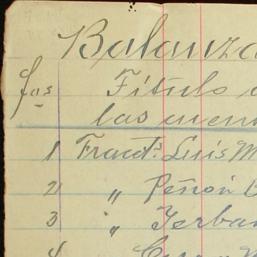 Balanza
fos Título d
las cuen
1 Fracto. Luis M
2 " Peñón B
3 " Yerba
4